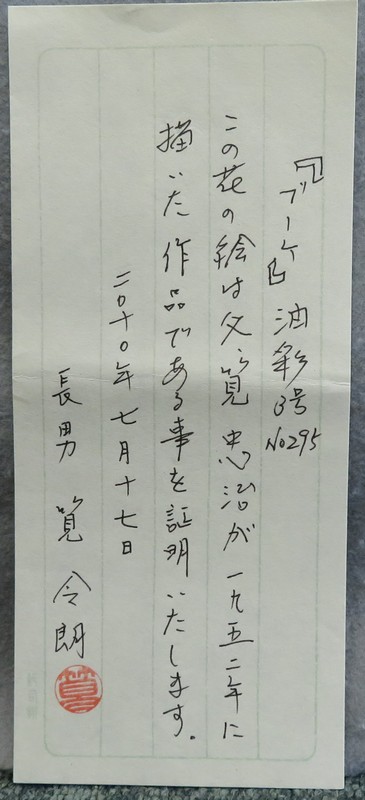 『ブーケ』油彩3号 No295
この花の絵は父、筧忠治が一九五二年に
描いた作品である事を証明いたします。
二〇十〇年七月十七日
長男 筧 令朗
筧